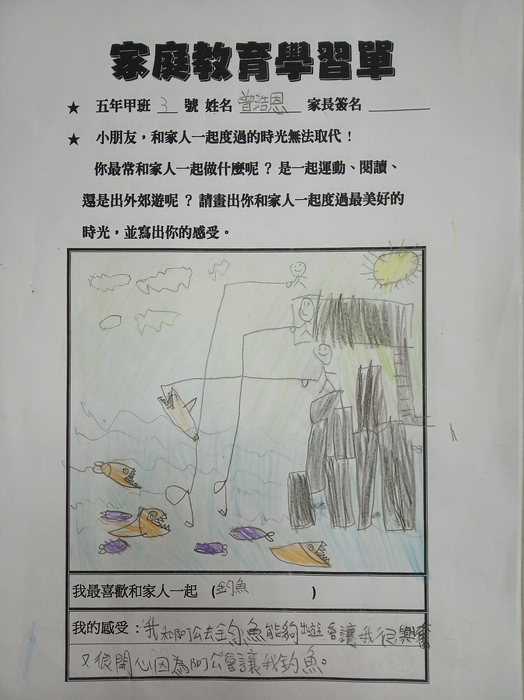 家庭教育學習單
★ 五年甲班 3 號 姓名 曾浩恩 家長簽名
★ 小朋友，和家人一起度過的時光無法取代！
你最常和家人一起做什麼呢？是一起運動、閱讀、
還是出外郊遊呢？請畫出你和家人一起度過最美好的
時光，並寫出你的感受。
我最喜歡和家人一起 (釣魚)
我的感受：我和阿公去釣魚能夠 會讓我很興奮
又很開心因為阿公會讓我釣魚。